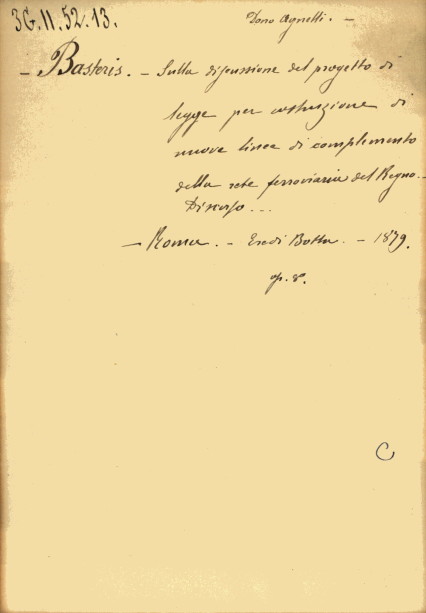 3G.11.52.13.
Dono Agnelli. -
- Basteris. - Sulla discussione del progetto di
legge per costruzione di
nuove linee di complemento
della rete ferroviaria del Regno. -
Discorso...
- Roma. - Eredi Botta. - 1879.
op. 8.
C